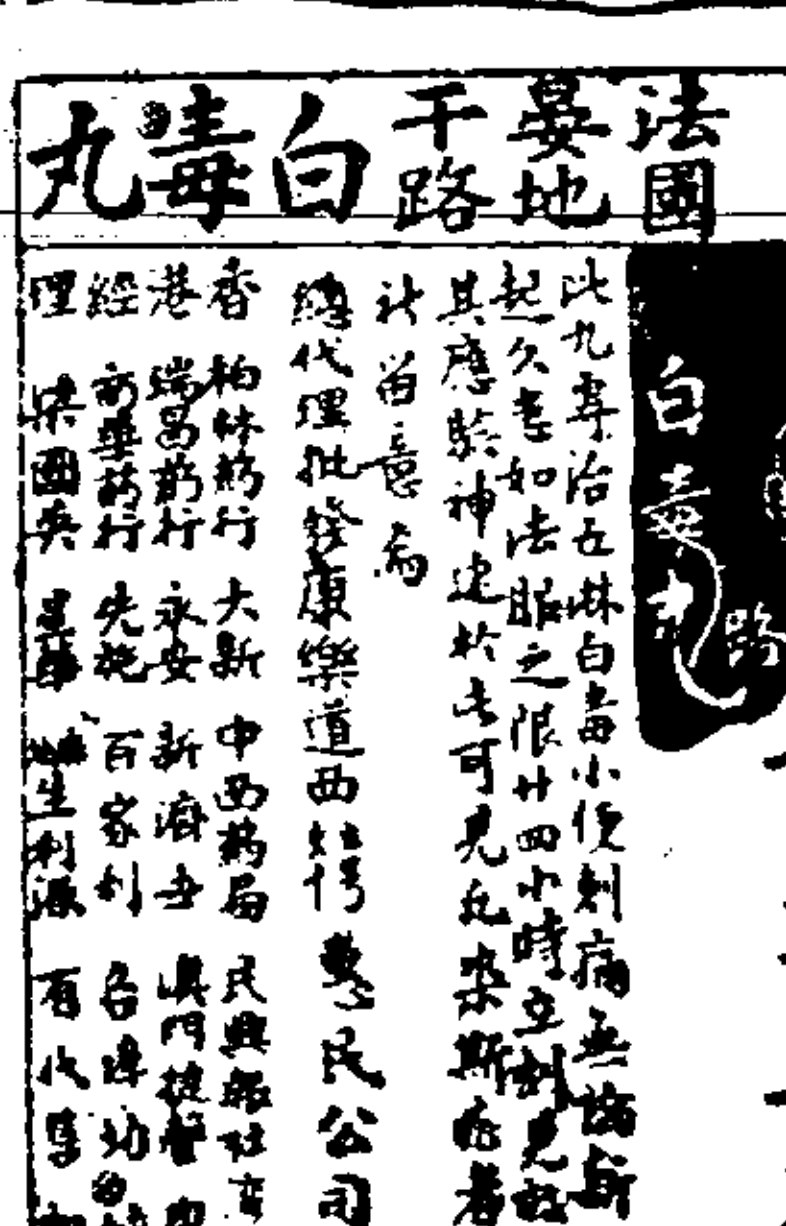 法國
晏地
干路
白毒丸
白毒丸
此丸專治五淋白毒小便刺痛無論新
起久患如法服之限廿四小時立刻見效
其應驗神速於此可見凡染斯症者
計留意焉
總代理批發康樂道西 惠民公司
香 柏林葯行 大新 中西葯局 民興報社
港 瑞昌葯行 永安 新濟安 澳門
經 南華葯行 先施 百家利 各埠
理 梁國英 生利源 有代售